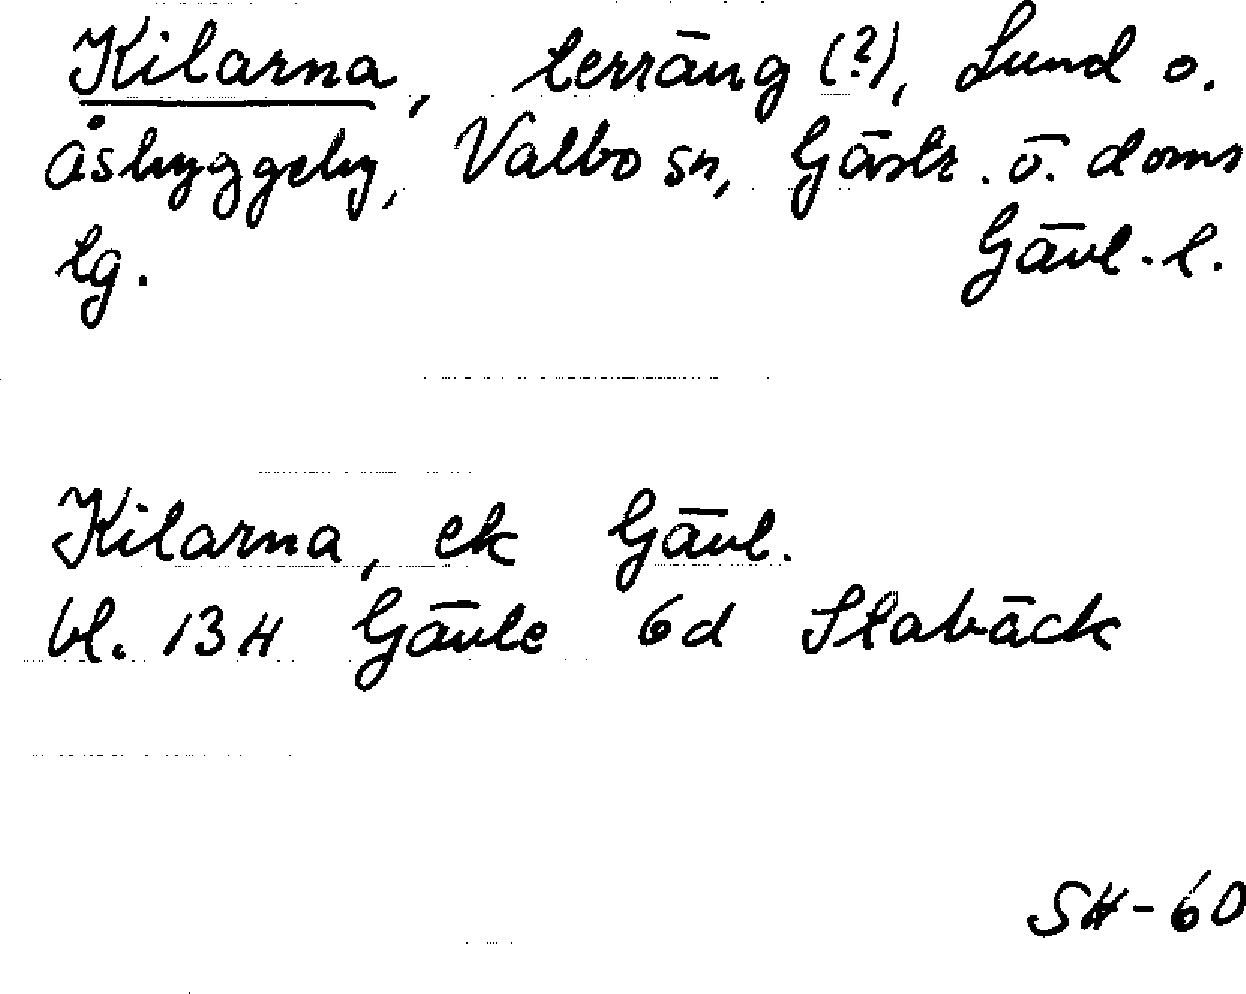 Kilarna, terräng (?), Lund o.
Åsbyggeby, Valbo sn, Gästr. ö. doms
tg. Gävl. l.
Kilarna, ek Gävl.
bl. 13H Gävle 6d Stabäck
SH-60